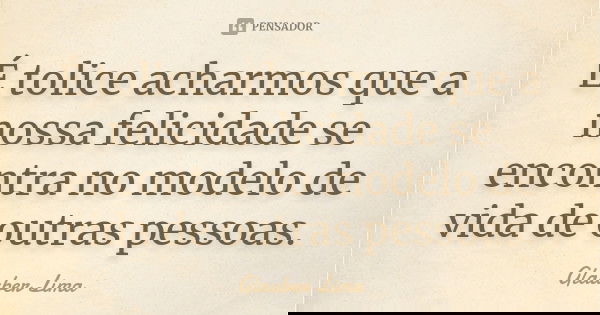 PENSADOR
É tolice acharmos que a
nossa felicidade se
encontra no modelo de
vida de outras pessoas.
Glauber Lima